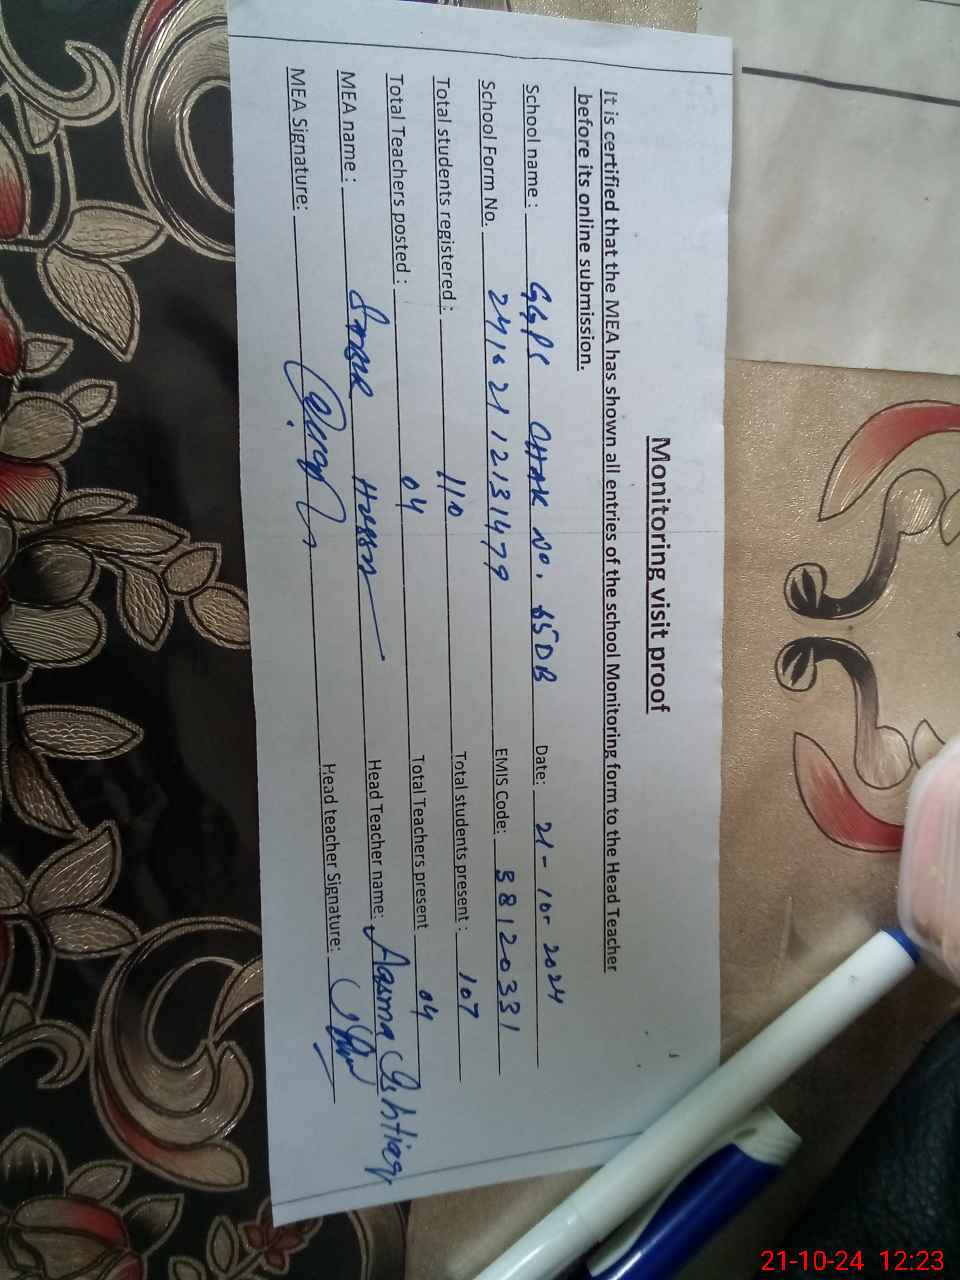 Monitoring visit proof
It is certified that the MEA has shown all entries of the school Monitoring form to the Head Teacher
before its online submission.
School name : GGPS CHAK No. 65DB Date: 21-10-2024
School Form No. 2410 21 1213 1479 EMIS Code: 38120331
Total students registered : 110 Total students present : 107
Total Teachers posted : 04 Total Teachers present 04
MEA name : Head Teacher name: Aasma Ishtiaq
MEA Signature: Head teacher Signature:
21-10-24 12:23